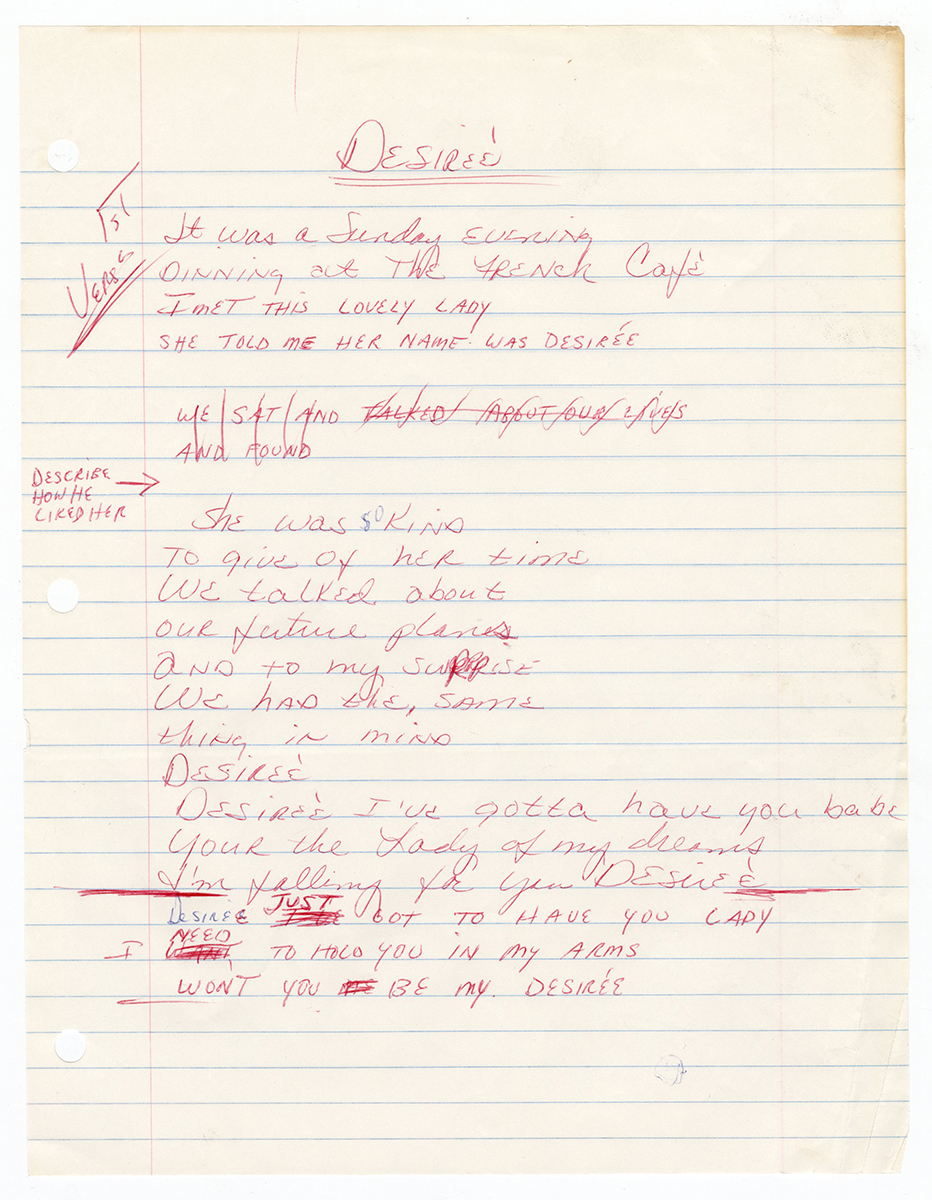 DESIREÉ
1st
VERSE
It was a Sunday EVENING
DINNING at THE FRENCH Café
I MET THIS LOVELY LADY
SHE TOLD ME HER NAME WAS DESIRÉE
WE SAT AND TALKED ABOUT OUR LIVES
AND FOUND
DESCRIBE
HOW HE
LIKED HER
She was so KIND
TO give Of hER time
WE talKED about
OUR future plans
AND to my SURPRISE
WE HAD the, SAME
thing in mind
DESIREÉ
DESIREÉ I'VE gotta have you babe
YOUR the Lady of my dreams
I'm falling for you DESIREÉ
DESIREE JUST GOT TO HAVE YOU LADY
I NEED TO HOLD YOU IN MY ARMS
WON'T YOU BE MY DESIRÉE